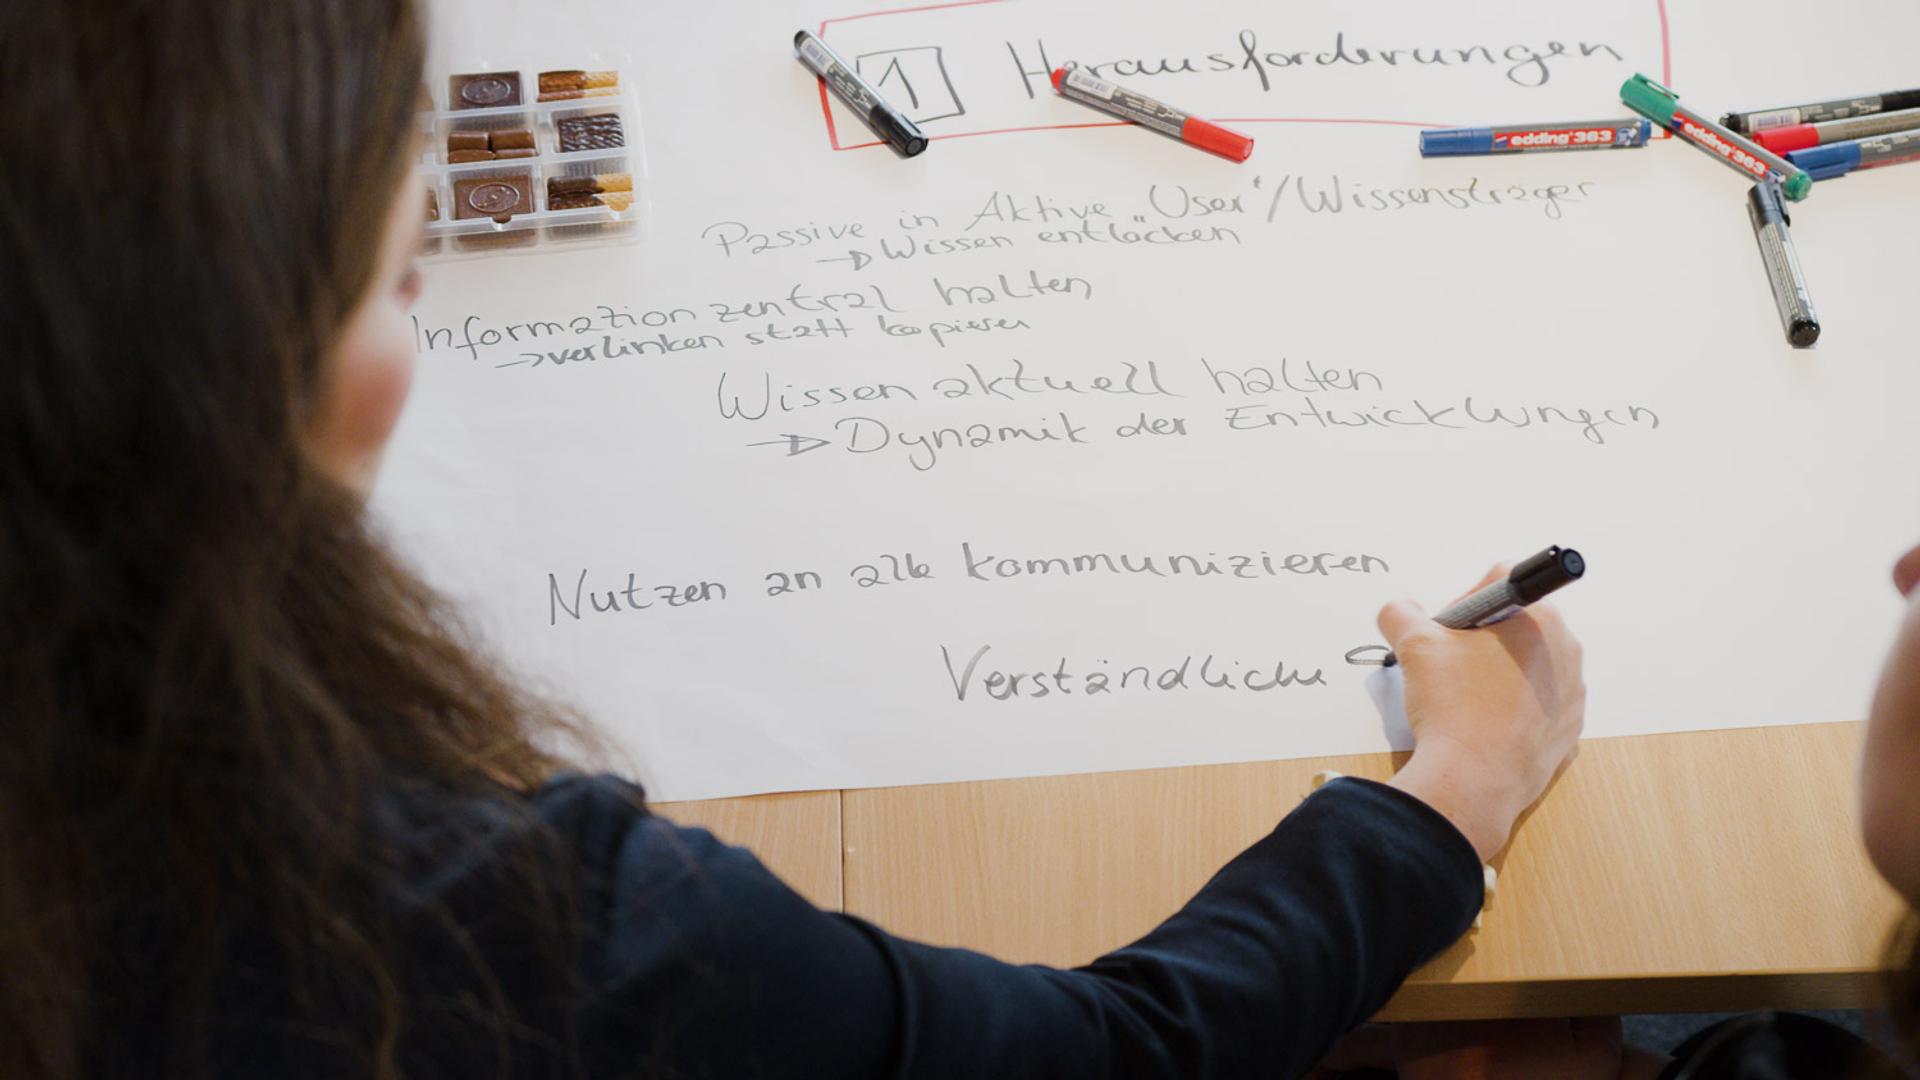 1 Herausforderungen
edding 363
edding 363
Passive in Aktive „User“/Wissensträger
→ Wissen entlocken
Information zentral halten
→ verlinken statt kopieren
Wissen aktuell halten
→ Dynamik der Entwicklungen
Nutzen an alle kommunizieren
Verständliche